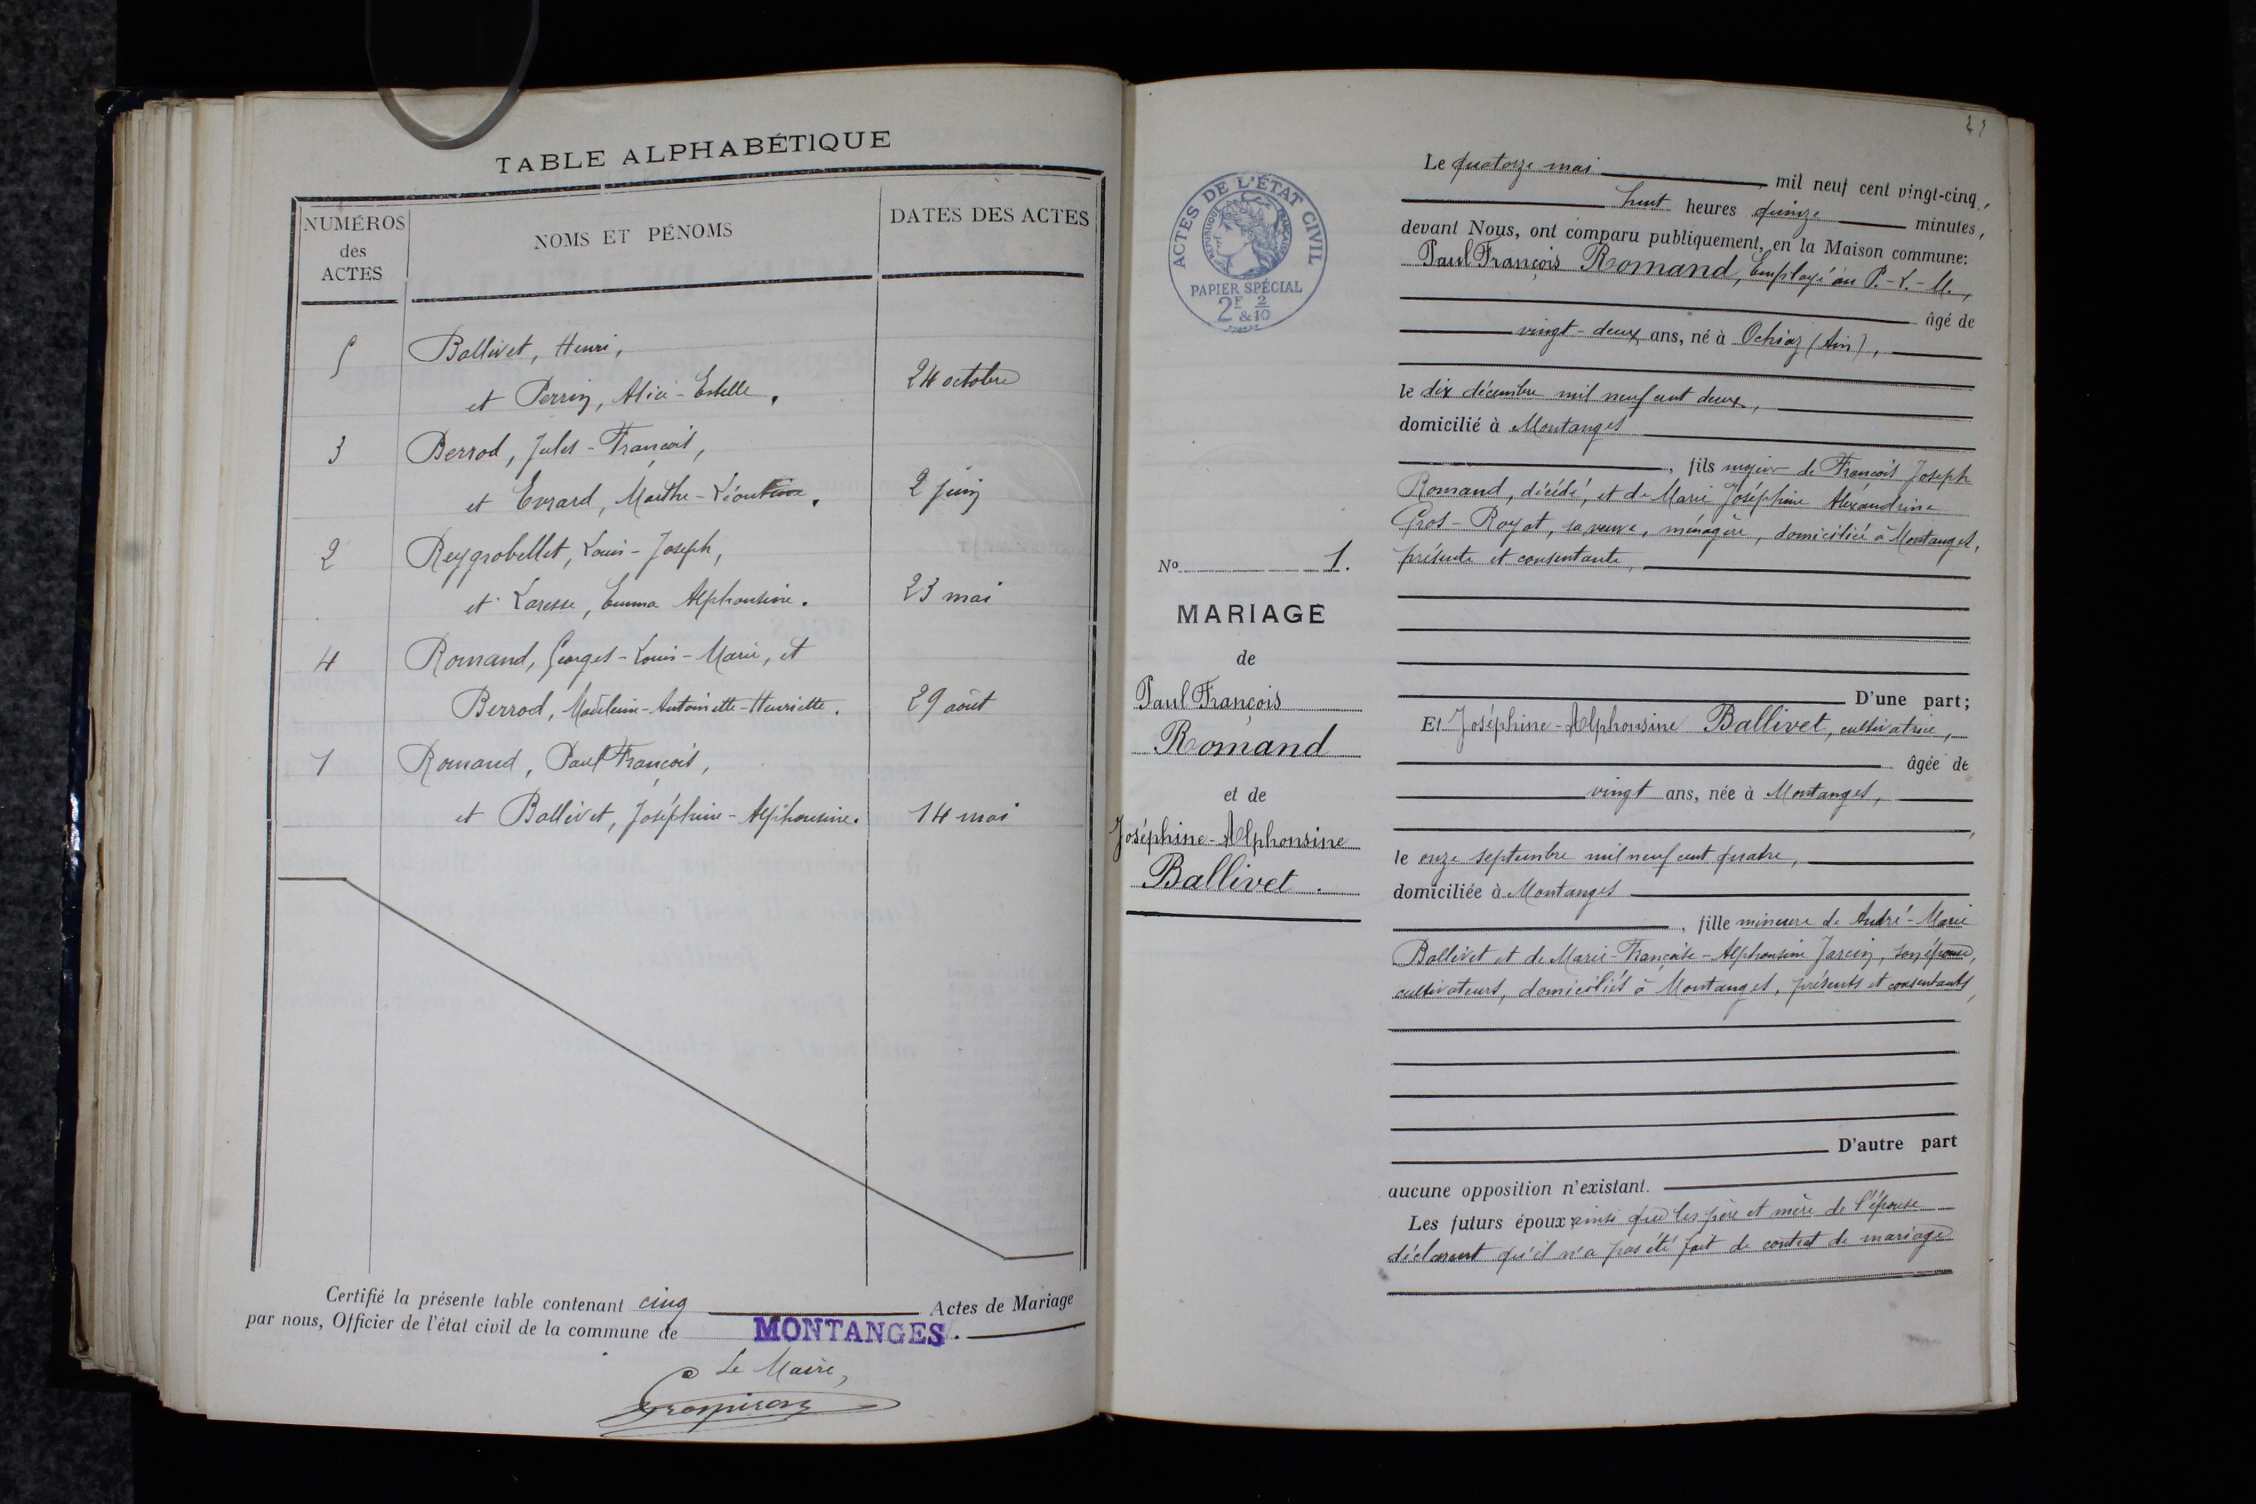 TABLE ALPHABÉTIQUE
NUMÉROS
des
ACTES
NOMS ET PÉNOMS
DATES DES ACTES
5
Ballivet, Henri,
et Perrin, Alice-Estelle.
24 octobre
3
Berrod, Jules-François,
et Evrard, Marthe-Léontine.
2 juin
2
Reygrobellet, Louis-Joseph,
et Laresse, Emma Alphonsine.
23 mai
4
Romand, Georges-Louis-Marie, et
Berrod, Madeleine-Antoinette-Henriette.
29 août
1
Romand, Paul François,
et Ballivet, Joséphine-Alphonsine.
14 mai
Certifié la présente table contenant cinq Actes de Mariage
par nous, Officier de l'état civil de la commune de MONTANGES.
Le Maire,
ACTES DE L'ÉTAT CIVIL
RÉPUBLIQUE FRANÇAISE
PAPIER SPÉCIAL
2F & 2/10
No 1.
MARIAGE
de
Paul François
Romand
et de
Joséphine-Alphonsine
Ballivet.
Le quatorze mai mil neuf cent vingt-cinq,
huit heures quinze minutes,
devant Nous, ont comparu publiquement, en la Maison commune:
Paul François Romand, Employé au P.-L.-M.,
âgé de
vingt-deux ans, né à Ochiaz (Ain),
le dix décembre mil neuf cent deux,
domicilié à Montanges
, fils majeur de François Joseph
Romand, décédé, et de Marie Joséphine Alexandrine
Gros-Royat, sa veuve, ménagère, domiciliée à Montanges,
présente et consentante,
D'une part;
Et Joséphine-Alphonsine Ballivet, cultivatrice,
âgée de
vingt ans, née à Montanges,
le onze septembre mil neuf cent quatre,
domiciliée à Montanges
, fille mineure de André-Marie
Ballivet et de Marie-Françoise-Alphonsine Jarcin, son épouse,
cultivateurs, domiciliés à Montanges, présents et consentants,
D'autre part
aucune opposition n'existant.
Les futurs époux ainsi que les père et mère de l'épouse
déclarent qu'il n'a pas été fait de contrat de mariage